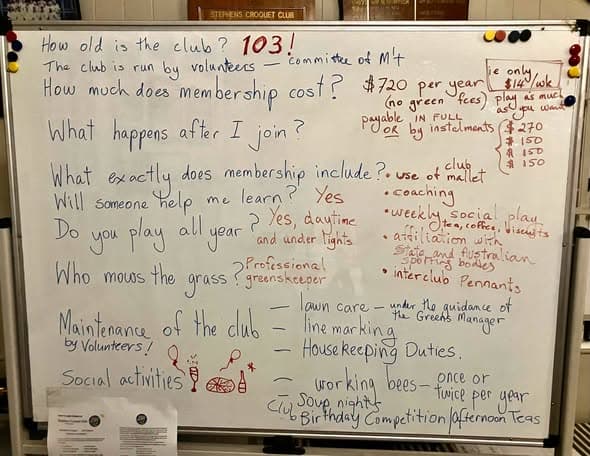 STEPHENS CROQUET CLUB
How old is the club? 103!
The club is run by volunteers — committee of M't
How much does membership cost? $720 per year
(no green fees)
ie only
$14/wk
play as much
as you want
payable IN FULL
OR by instalments
$270
$150
$150
$150
What happens after I join?
What exactly does membership include?
• use of club mallet
• coaching
• weekly social play
tea, coffee, biscuits
• affiliation with
state and Australian
sporting bodies
• interclub Pennants
Will someone help me learn? Yes
Do you play all year? Yes, daytime
and under lights
Who mows the grass? Professional
greenskeeper
Maintenance of the club
by Volunteers!
— lawn care — under the guidance of
the Greens Manager
— line marking
— Housekeeping Duties.
— working bees — once or
twice per year
Social activities
— Soup nights
Club Birthday Competition/Afternoon Teas